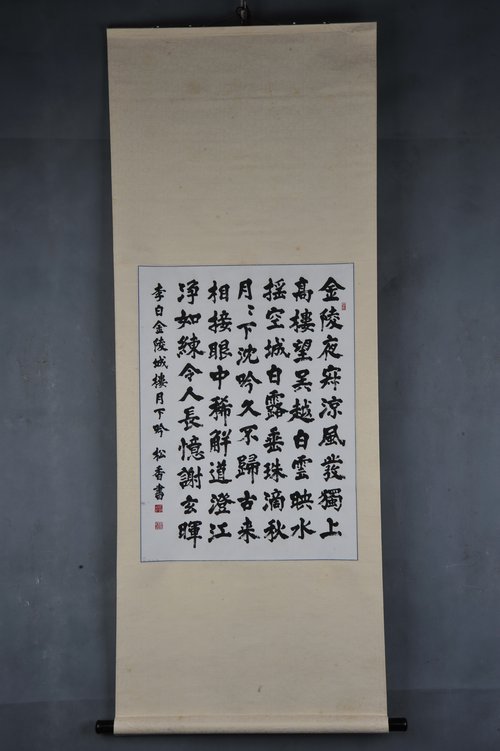 金陵夜寂涼風發獨上
高樓望吴越白雲映水
揺空城白露垂珠滴秋
月〻下沈吟久不歸古来
相接眼中稀解道澄江
浄如練令人長憶謝玄暉
李白金陵城樓月下吟 松香書